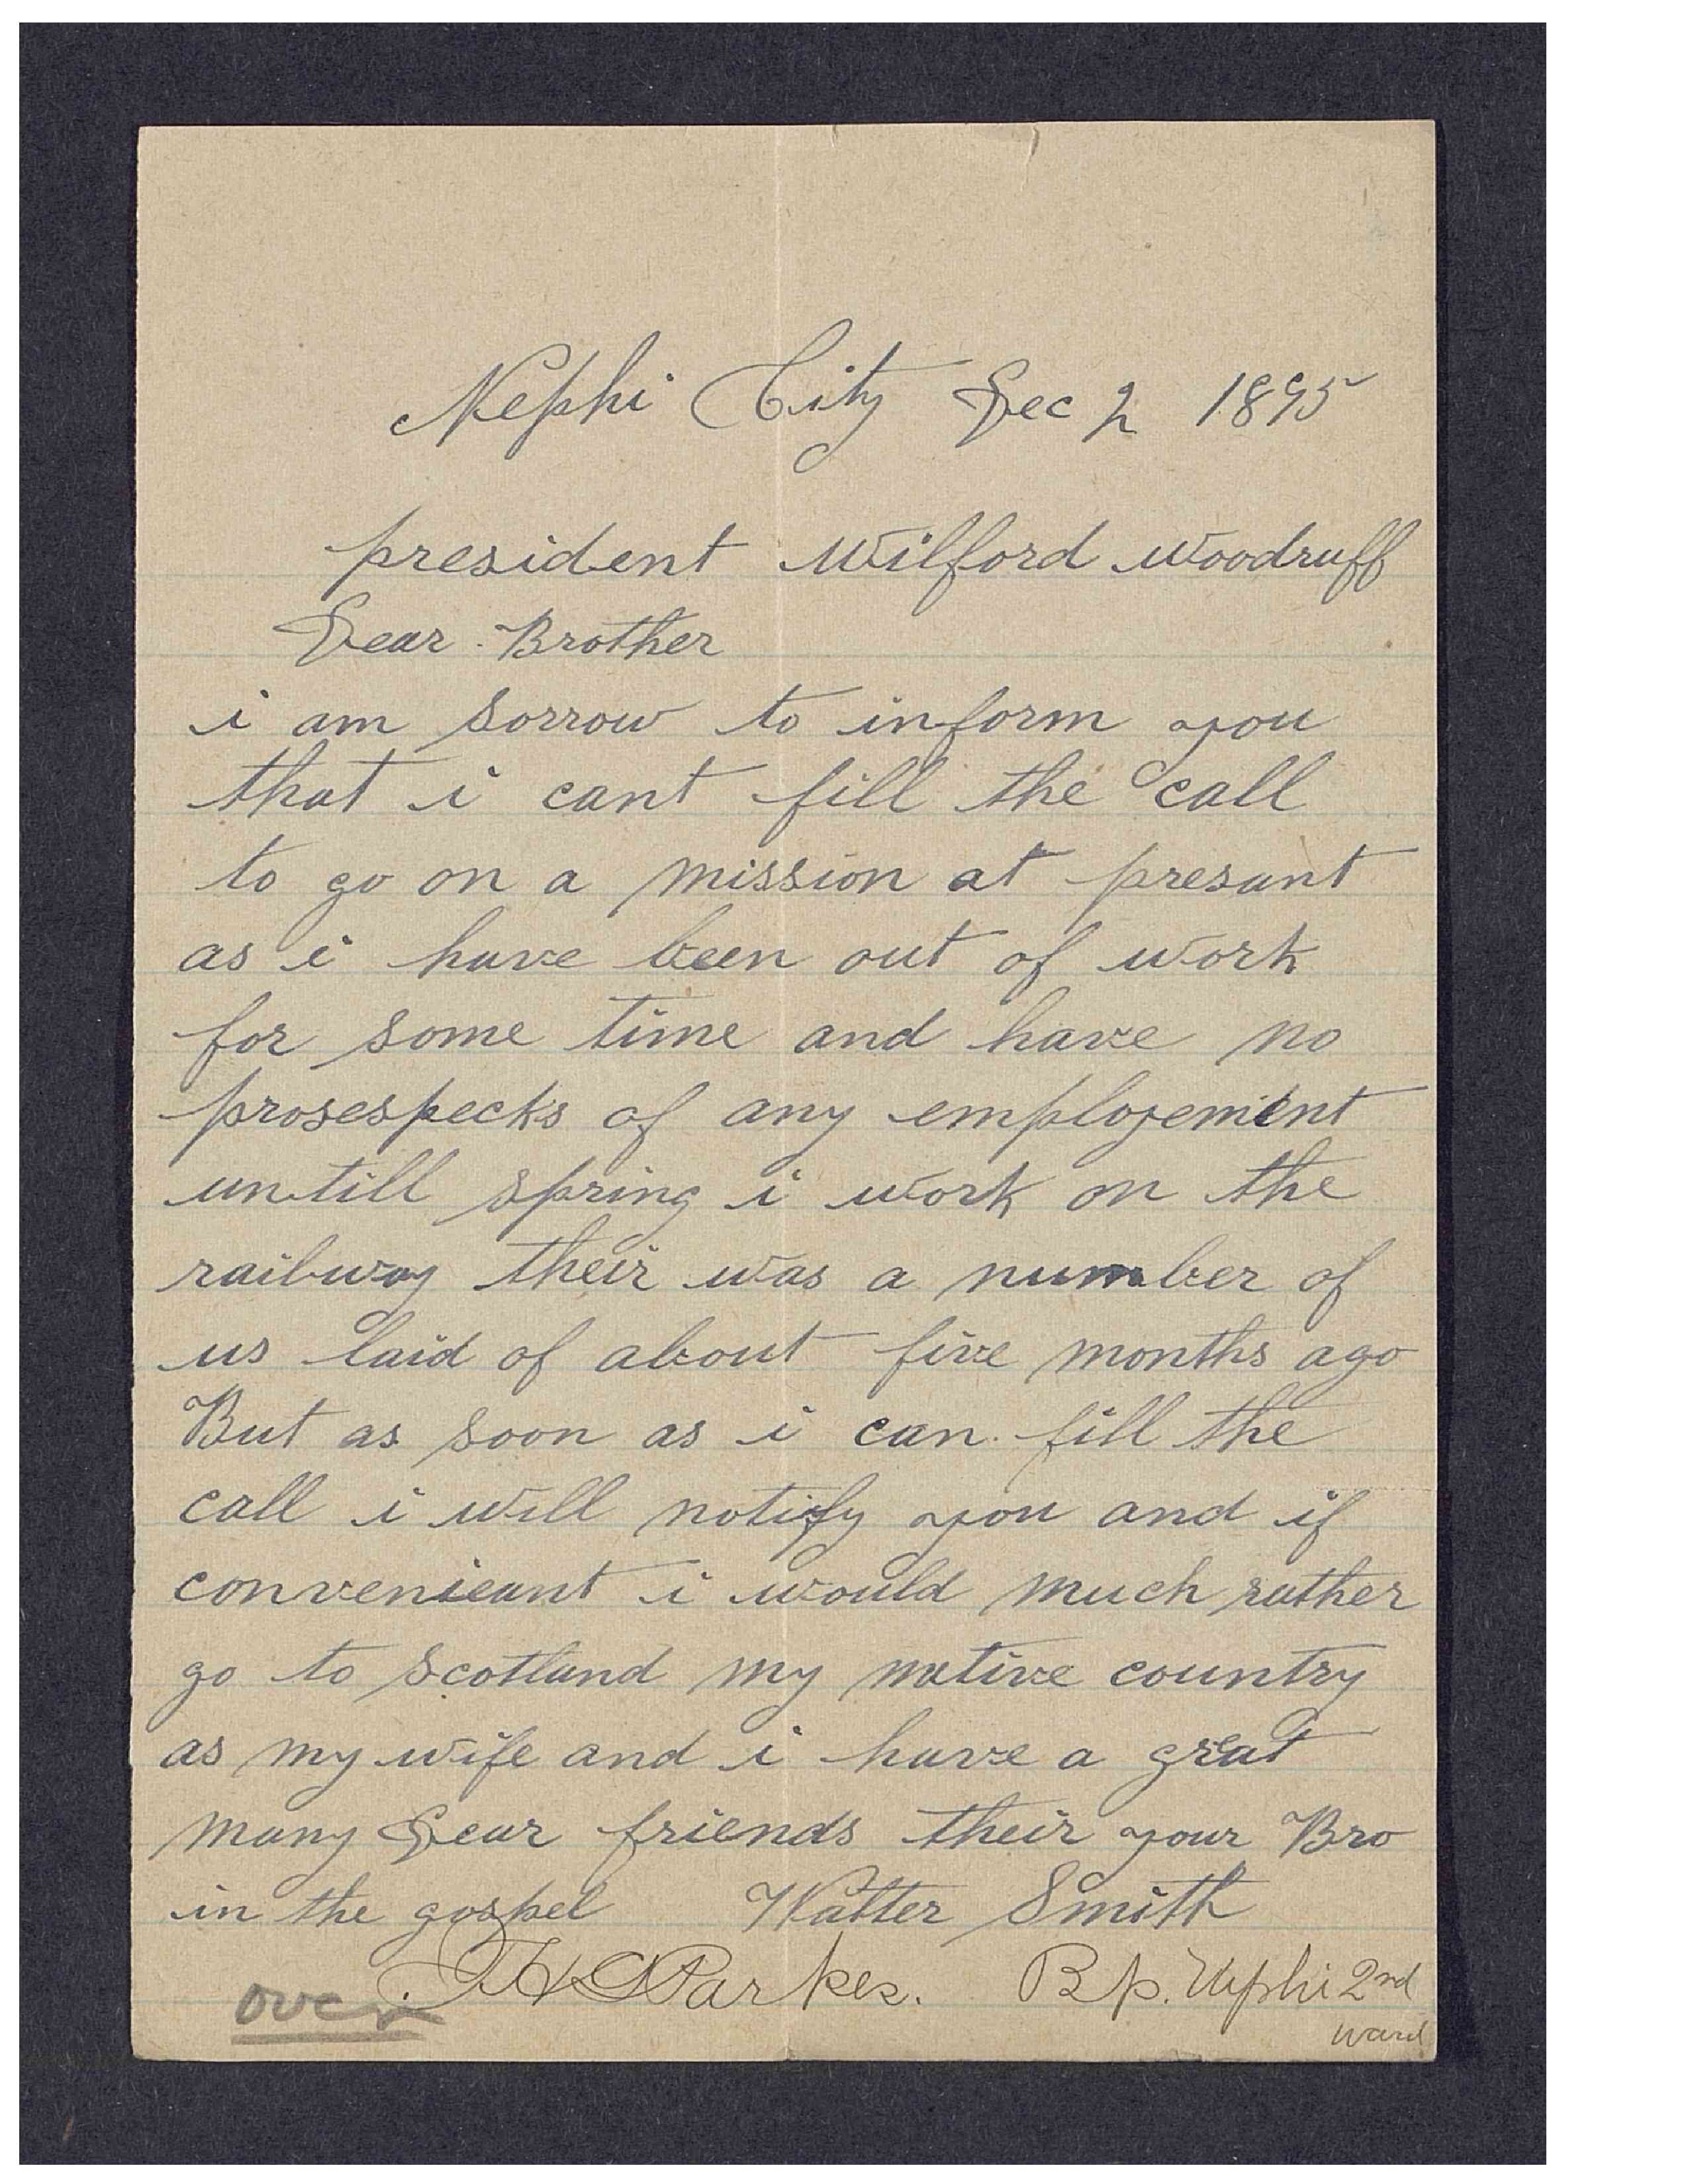 Nephi City Dec 2 1895
president Wilford Woodruff
Dear Brother
i am sorrow to inform you
that i cant fill the call
to go on a mission at presant
as i have been out of work
for some time and have no
prosespecks of any employement
untill spring i work on the
railway their was a number of
us laid of about five months ago
But as soon as i can fill the
call i will notify you and if
convenieant i would much rather
go to Scotland my native country
as my wife and i have a great
many Dear friends their your Bro
in the gospel Walter Smith
Parkes. Bp. Nephi 2nd
ward
over